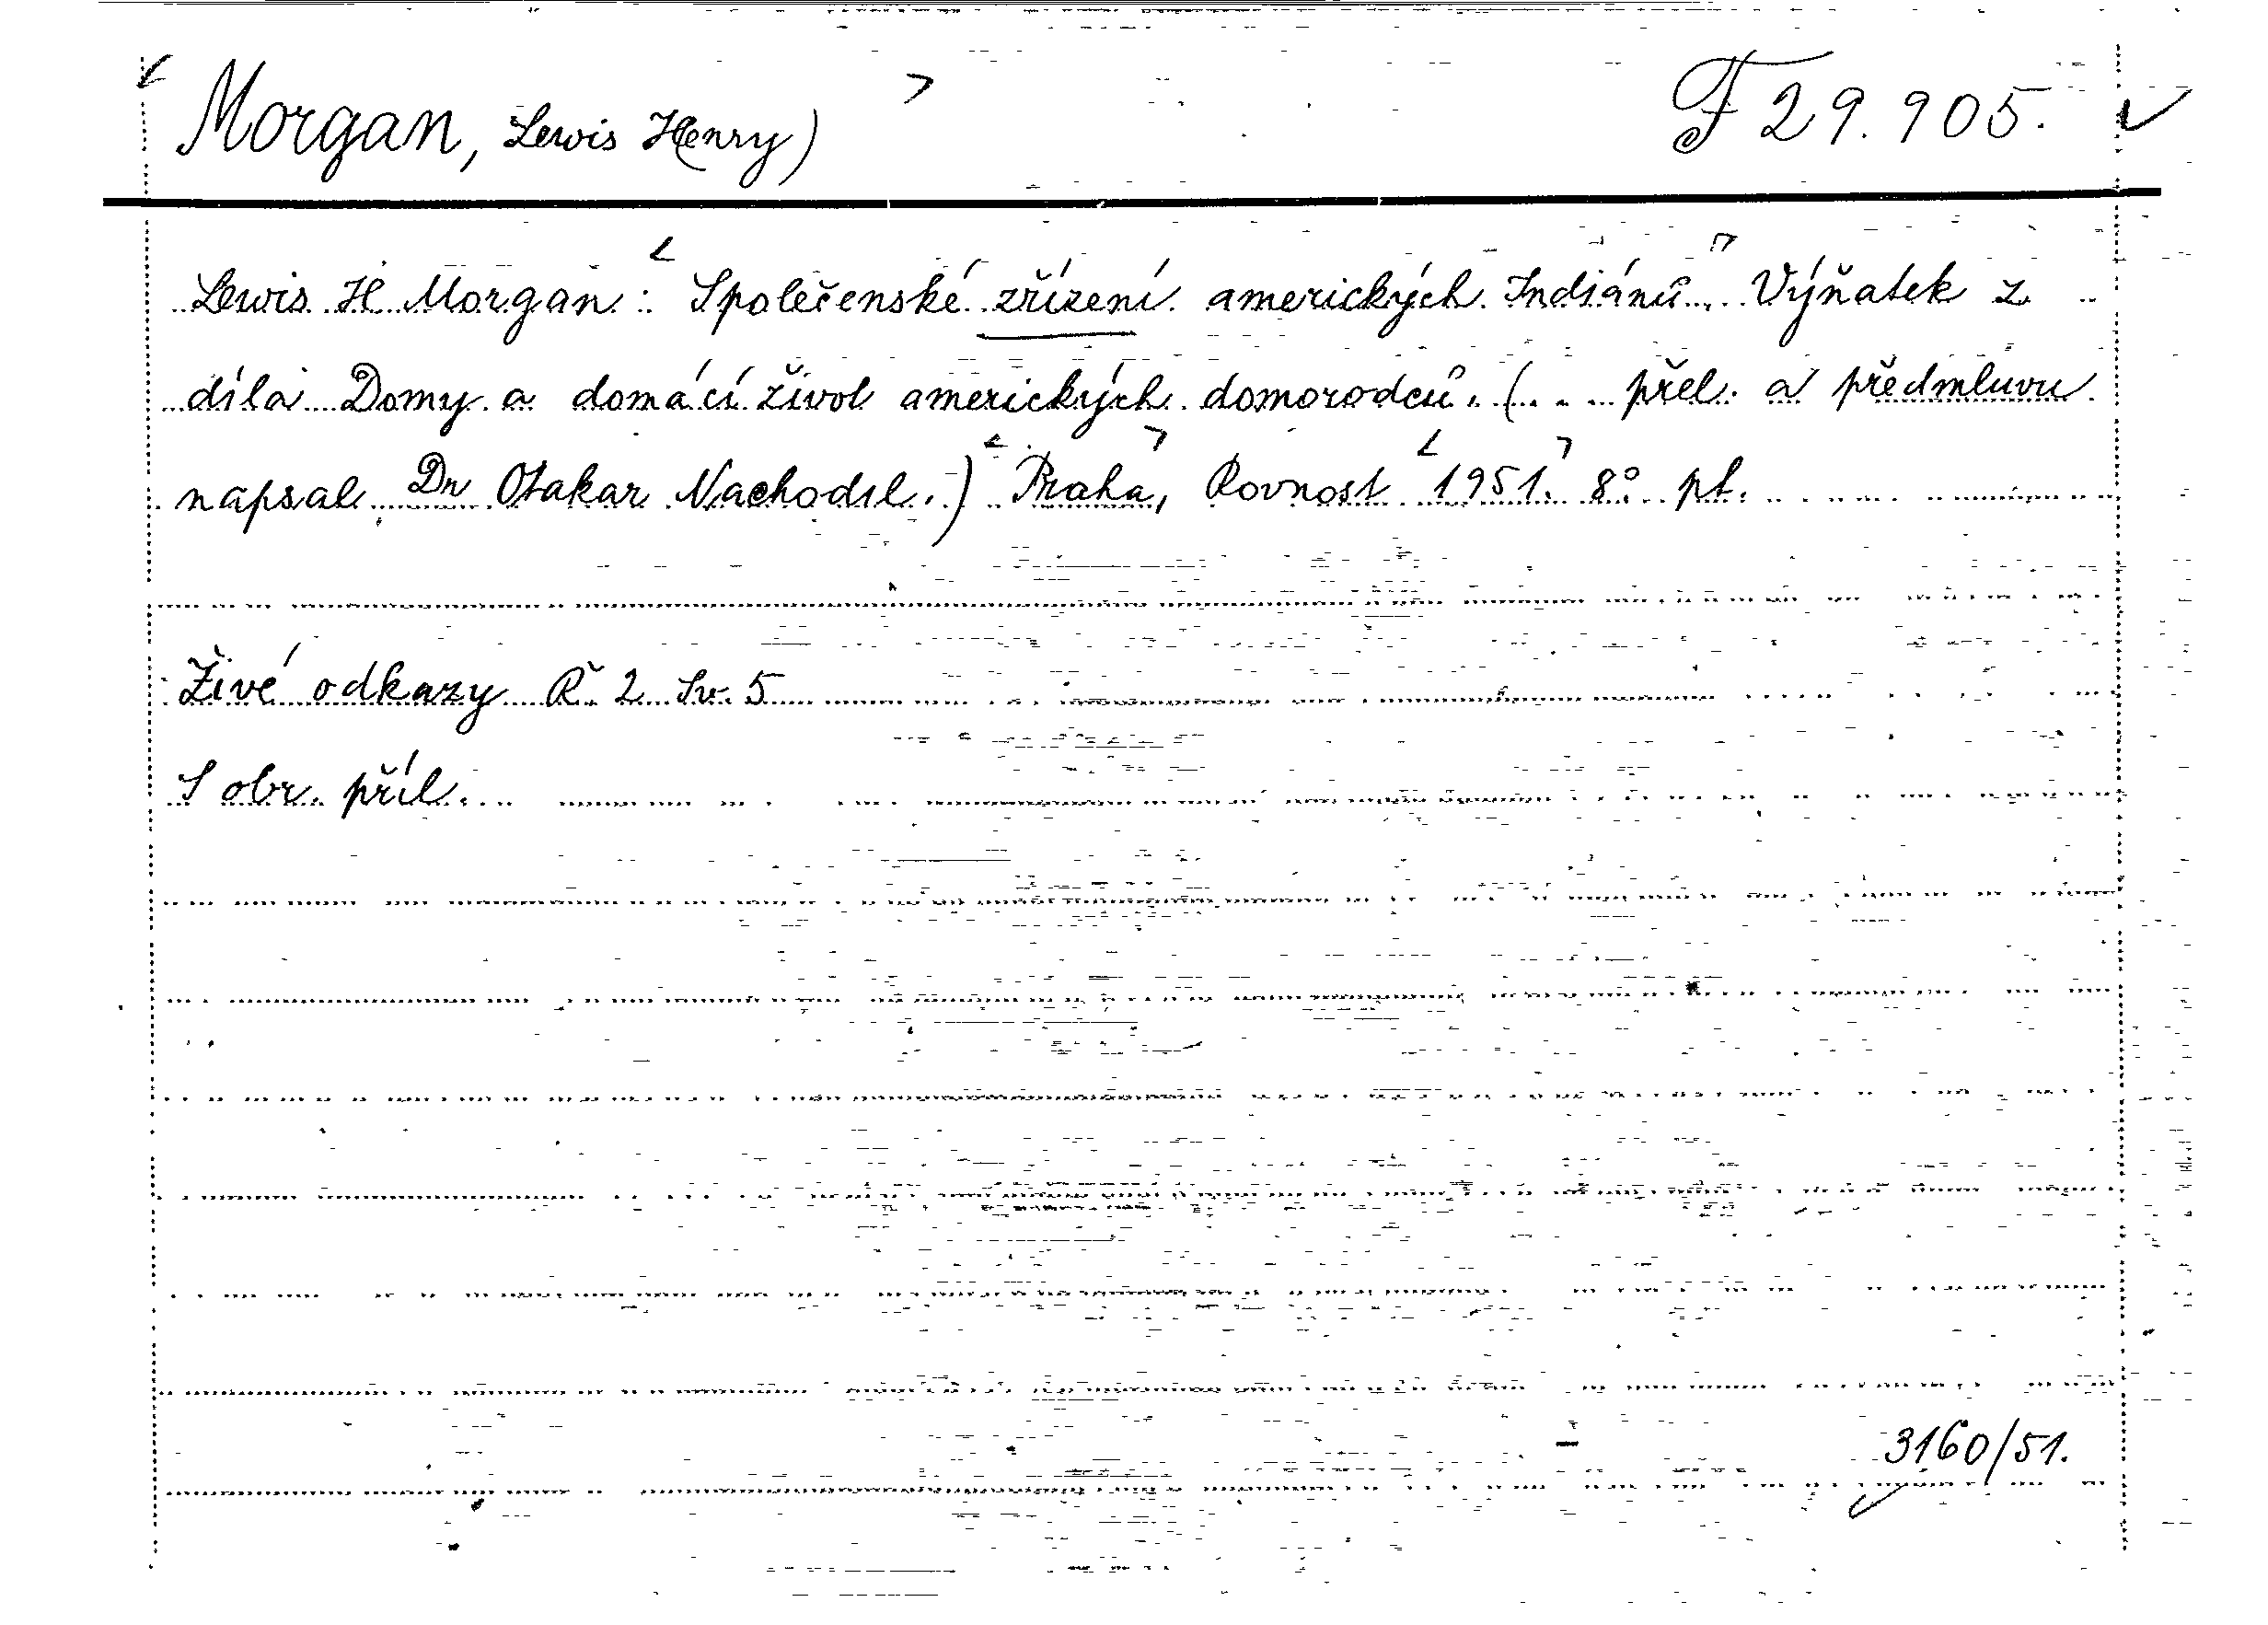 Morgan, Lewis Henry) F 29.905.
Lewis H Morgan: Společenské zřízení amerických Indiánů. Výňatek z
díla Domy a domácí život amerických domorodců. (... přel. a předmluvu
napsal Dr Otakar Nachodil.) Praha, Rovnost 1951. 8° pt.
Živé odkazy Ř. 2 Sv. 5
S obr. příl.
3160/51.